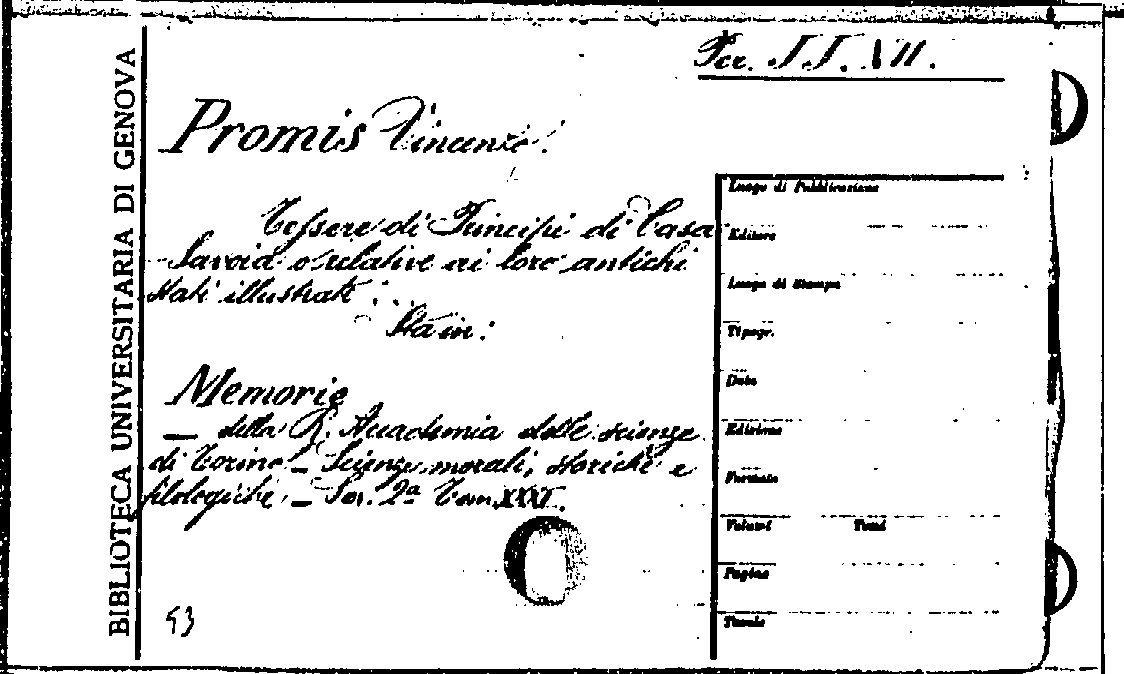 Per. J J. VII.
BIBLIOTECA UNIVERSITARIA DI GENOVA
Promis Vincenzo.
Tessere di Principi di Casa
Savoia o relative ai loro antichi
stati illustrati.
Sta in:
Memorie
— della R. Accademia delle scienze
di Torino – Scienze morali, storiche e
filologiche. – Ser. 2ª Tom. XXXI.
53
Luogo di Pubblicazione
Editore
Luogo di Stampa
Tipogr.
Data
Edizione
Formato
Volumi Tomi
Pagine
Tavole